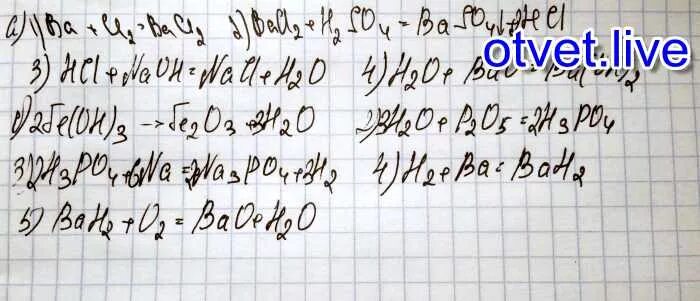 а) 1) Ba + Cl2 = BaCl2 2) BaCl2 + H2SO4 = BaSO4↓ + 2HCl
otvet.live
3) HCl + NaOH = NaCl + H2O 4) H2O + BaO = Ba(OH)2
1) 2Fe(OH)3 → Fe2O3 + 3H2O 2) 3H2O + P2O5 = 2H3PO4
3) 2H3PO4 + 6Na = 2Na3PO4 + 3H2 4) H2 + Ba = BaH2
5) BaH2 + O2 = BaO + H2O